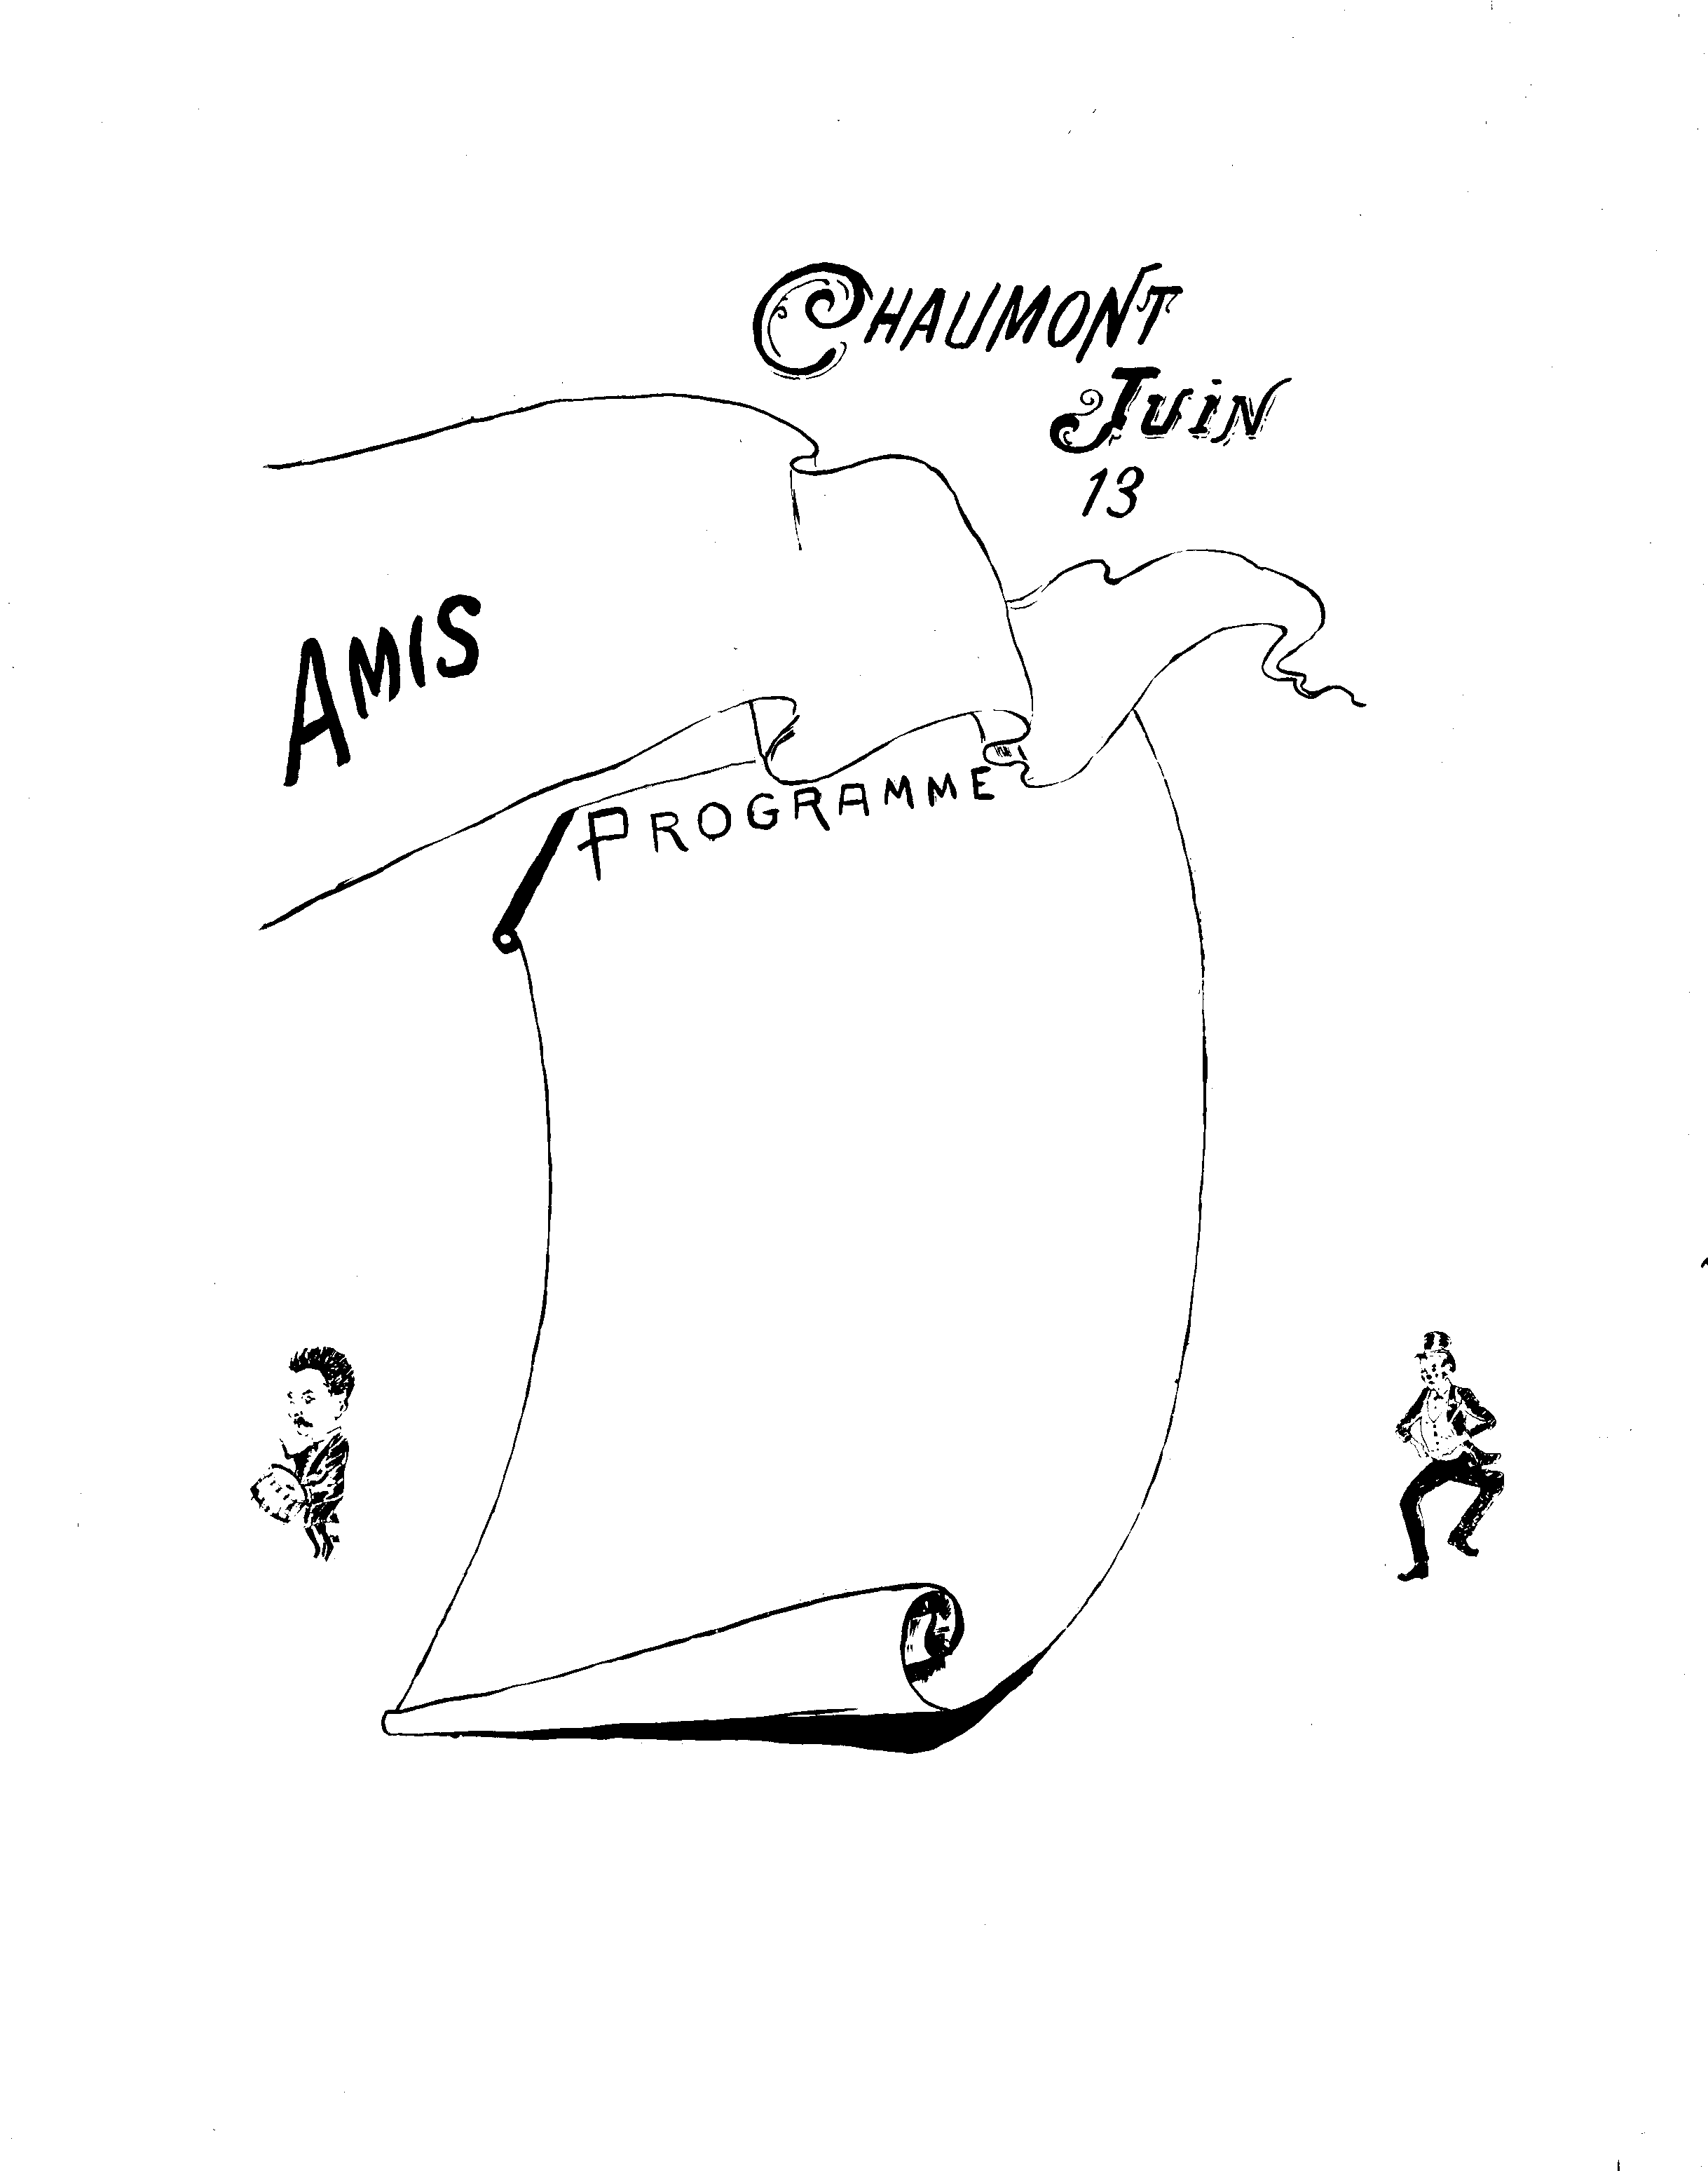 CHAUMONT
JUIN
13
AMIS
PROGRAMME